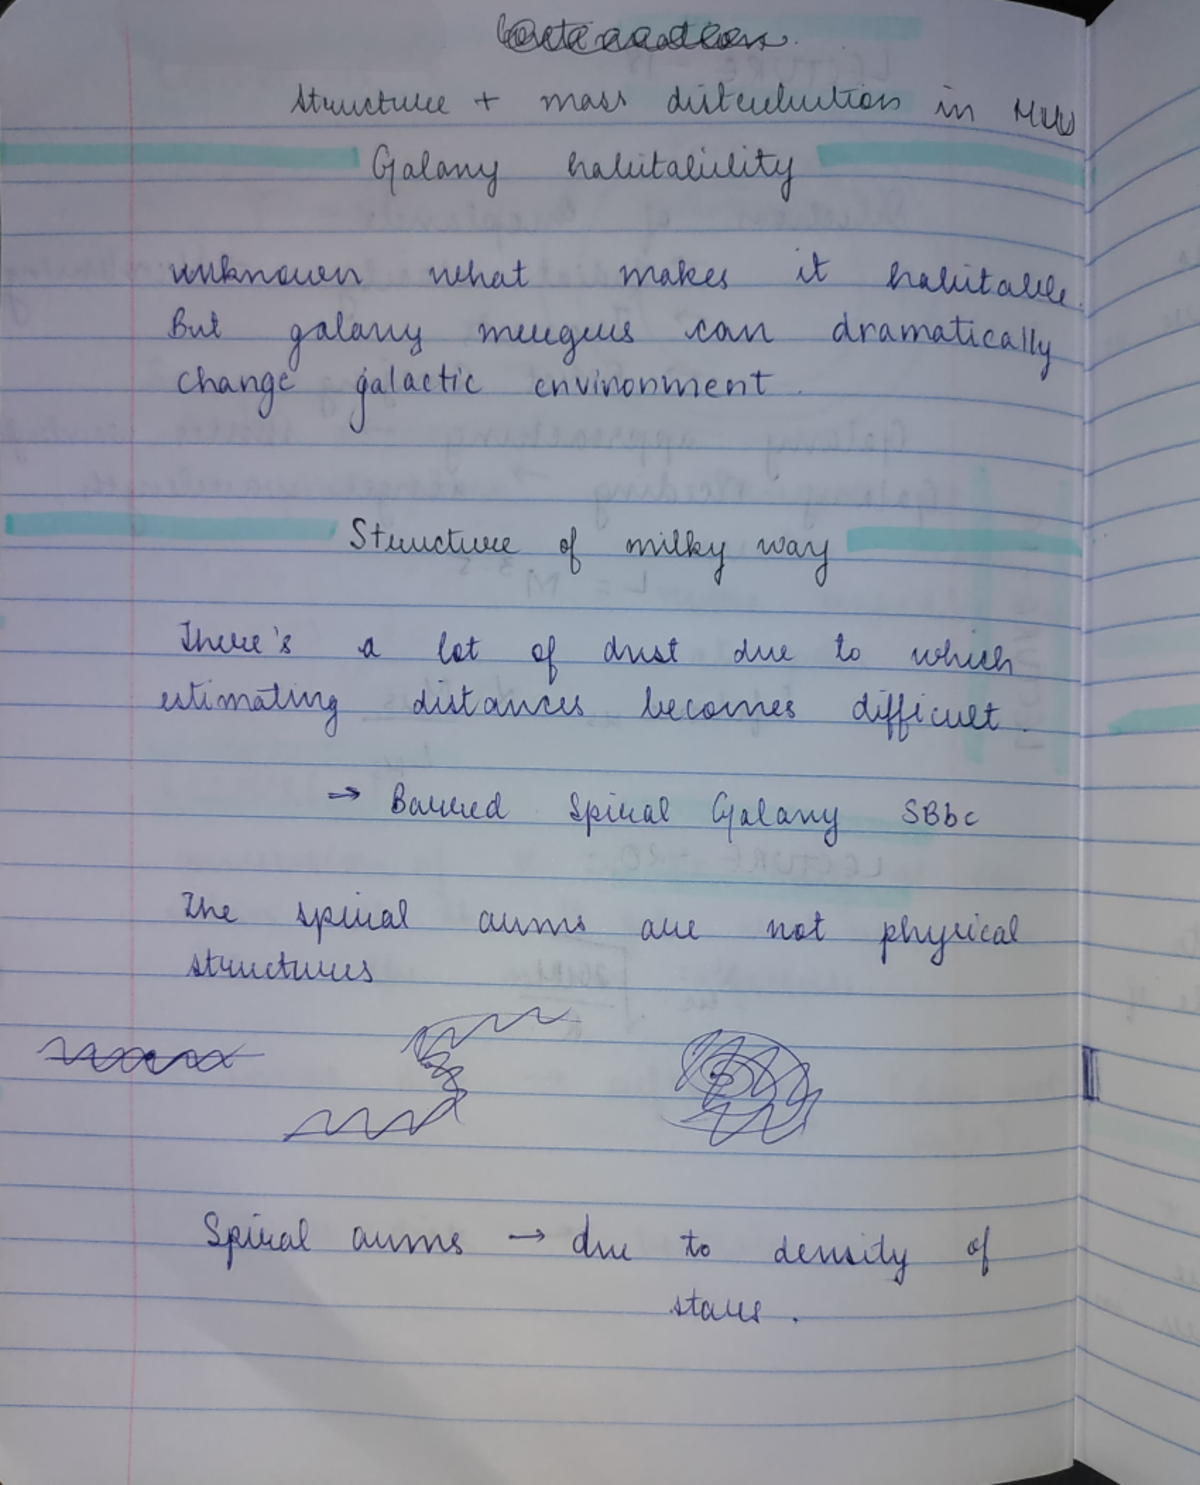 Structure + mass distribution in MW
Galaxy habitability
unknown what makes it habitable.
But galaxy mergers can dramatically
change galactic environment.
Structure of milky way
There's a lot of dust due to which
estimating distances becomes difficult.
→ Barred Spiral Galaxy SBbc
The spiral arms are not physical
structures
Spiral arms → due to density of
stars.